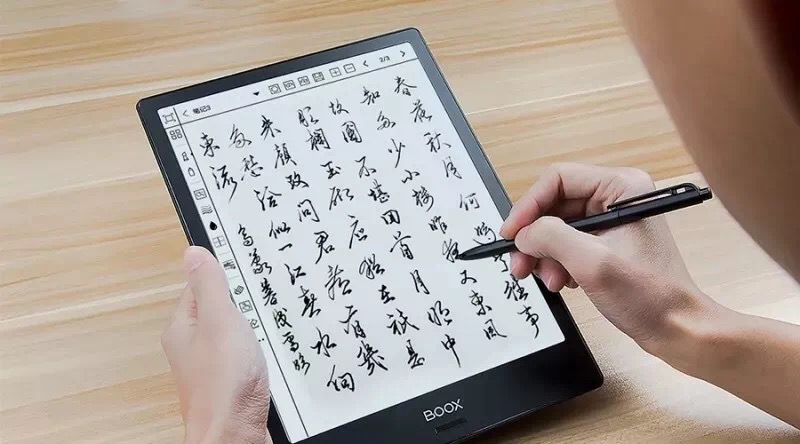 笔记3
2/3
春花秋月何時了往事
知多少小楼昨夜又東風
故國不堪回首月明中
雕闌玉砌应猶在祇是
朱顔改问君能有幾
多愁恰似一江春水向
東流
BOOX